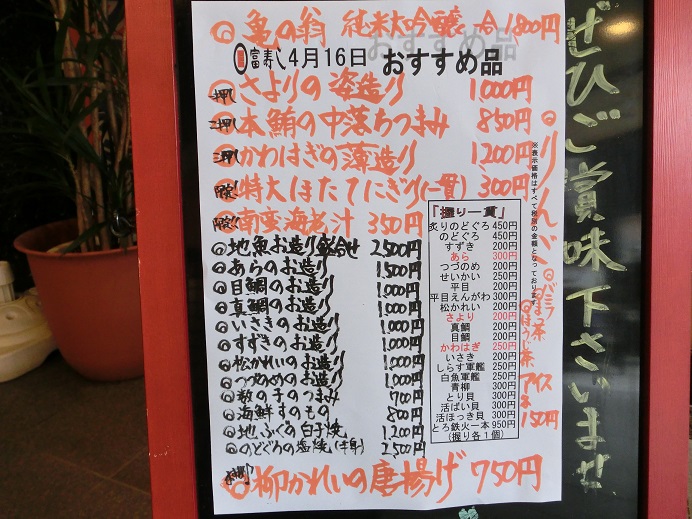 亀の翁 純米大吟醸 冷 1,800円
富寿し 4月16日 おすすめ品
一押し さよりの姿造り 1,000円
二押し 本鮪の中落ちつまみ 850円
三押し かわはぎの薄造り 1,200円
特大ほたてにぎり(一貫) 300円
南蛮海老汁 350円
地魚お造り盛合せ 2,500円
あらのお造り 1,500円
目鯛のお造り 1,000円
真鯛のお造り 1,000円
いさきのお造り 1,000円
すずきのお造り 1,000円
松かれいのお造り 1,000円
つづのめのお造り 1,000円
数の子のつまみ 700円
海鮮すのもの 800円
地ふぐの白子焼 1,200円
のどぐろの塩焼(半身) 2,500円
柳かれいの唐揚げ 750円
「握り一貫」
炙りのどぐろ 450円
のどぐろ 450円
すずき 200円
あら 300円
つづのめ 200円
せいかい 250円
平目 200円
平目えんがわ 300円
松かれい 200円
さより 200円
真鯛 200円
目鯛 200円
かわはぎ 250円
いさき 200円
しらす軍艦 250円
白魚軍艦 250円
青柳 300円
とり貝 300円
活ばい貝 300円
活ほっき貝 300円
とろ鉄火一本 950円
(握り各1個)
※表示価格はすべて税抜の金額となっております
バニラ
ほうじ茶
アイス
150円
ぜひご賞味下さいませ